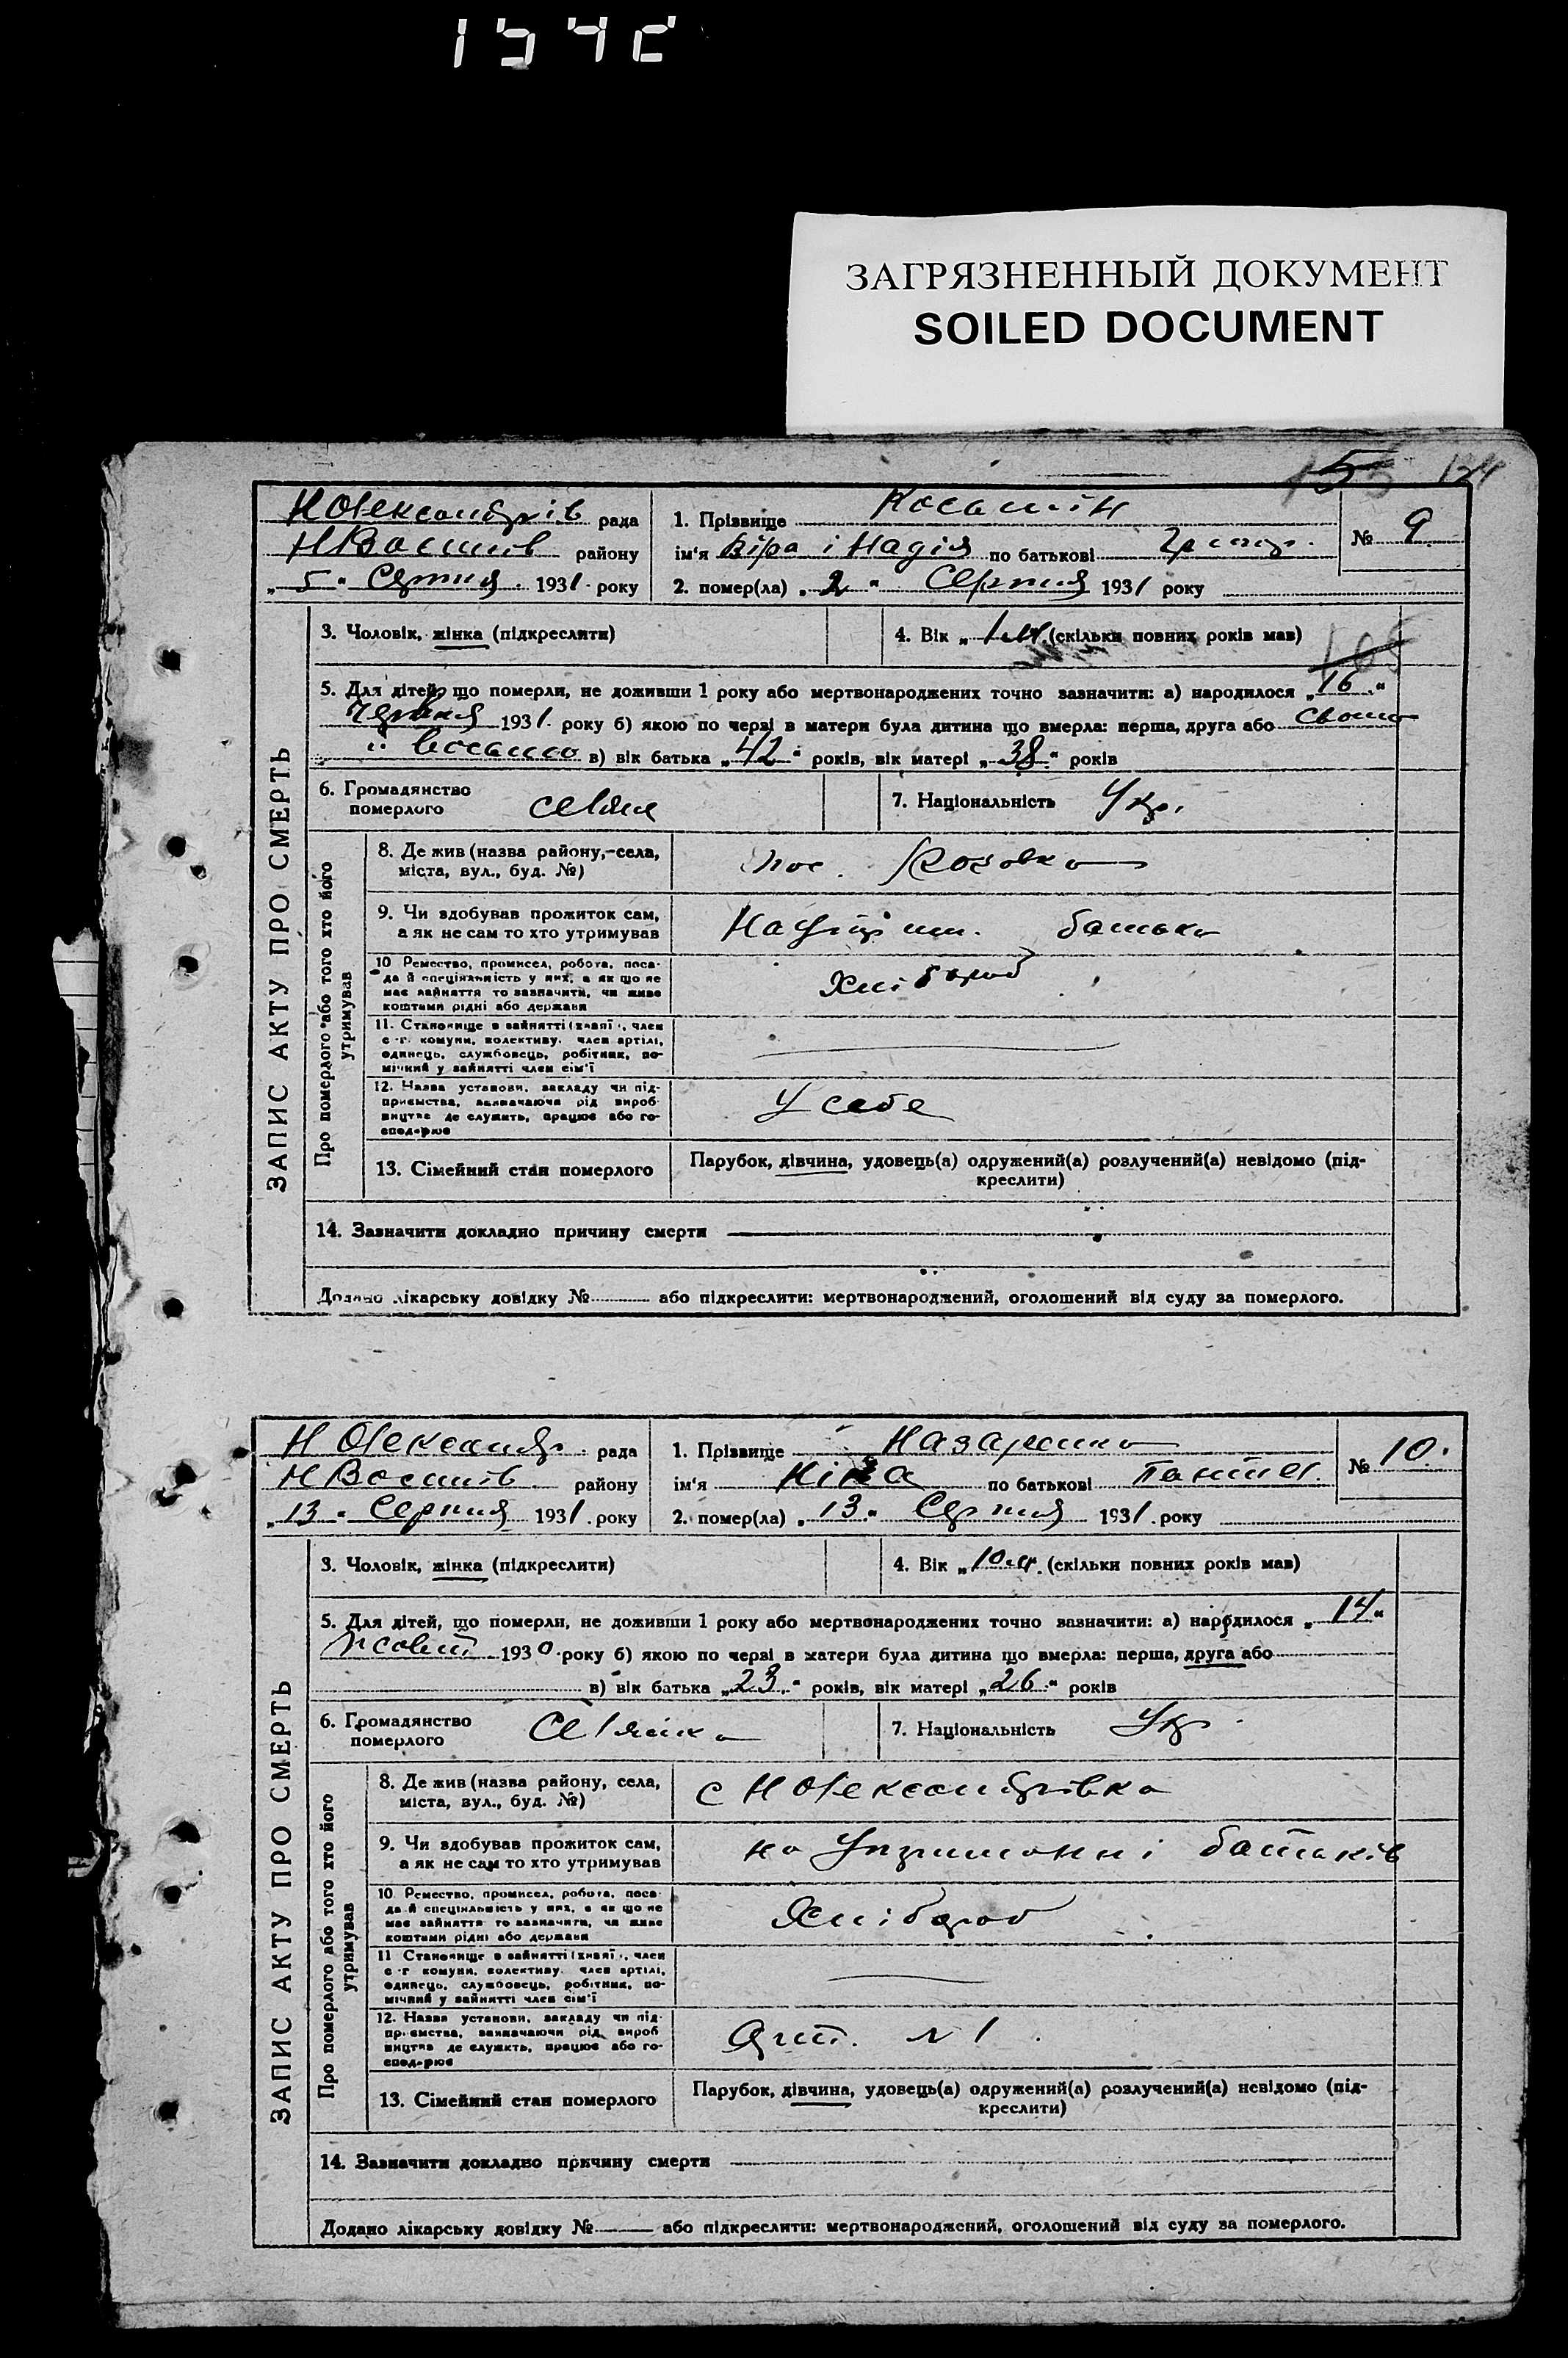 ЗАГРЯЗНЕННЫЙ ДОКУМЕНТ
SOILED DOCUMENT
124
рада
району
„5“ Серпня 1931 року
1. Прізвище
ім'я Віра і Надія по батькові
2. помер(ла) „2“ Серпня 1931 року
№ 9
ЗАПИС АКТУ ПРО СМЕРТЬ
3. Чоловік, жінка (підкреслити)
4. Вік „1 м. (скільки повних років мав)
5. Для дітей, що померли, не доживши 1 року або мертвонароджених точно зазначити: а) народилося „16“
Червня 1931 року б) якою по черзі в матери була дитина що вмерла: перша, друга або
в) вік батька „42“ років, вік матері „38“ років
6. Громадянство
померлого
7. Національність Укр.
Про померлого або того хто його
утримував
8. Де жив (назва району, села,
міста, вул., буд. №)
9. Чи здобував прожиток сам,
а як не сам то хто утримував
батька
10 Ремество, промисел, робота, поса-
да й спеціяльність у них, а як що не
має зайняття то зазначити, чи живе
коштами рідні або держави
Хлібороб
11. Становище в зайнятті (хазяї), член
с.-г. комуни, колективу, член артілі,
одинець, службовець, робітник, по-
мічний у зайнятті член сім'ї
12. Назва установи, закладу чи під-
приємства, зазначаючи рід вироб-
ництва де служить, працює або го-
сподарює
У себе
13. Сімейний стан померлого
Парубок, дівчина, удовець(а) одружений(а) розлучений(а) невідомо (під-
креслити)
14. Зазначити докладно причину смерти
Додано лікарську довідку № або підкреслити: мертвонароджений, оголошений від суду за померлого.
Н Олександр. рада
району
„13“ Серпня 1931 року
1. Прізвище Назаренко
ім'я Ніна по батькові
2. помер(ла) „13“ Серпня 1931 року
№ 10.
ЗАПИС АКТУ ПРО СМЕРТЬ
3. Чоловік, жінка (підкреслити)
4. Вік „10 м. (скільки повних років мав)
5. Для дітей, що померли, не доживши 1 року або мертвонароджених точно зазначити: а) народилося „14“
Жовт. 1930 року б) якою по черзі в матери була дитина що вмерла: перша, друга або
в) вік батька „23“ років, вік матері „26“ років
6. Громадянство
померлого
7. Національність Укр.
Про померлого або того хто його
утримував
8. Де жив (назва району, села,
міста, вул., буд. №)
с Н Олександрівка
9. Чи здобував прожиток сам,
а як не сам то хто утримував
на утриманні батьків
10. Ремество, промисел, робота, поса-
да й спеціяльність у них, а як що не
має зайняття то зазначити, чи живе
коштами рідні або держави
Хлібороб
11 Становище в зайнятті (хазяї), член
с.-г комуни, колективу, член артілі,
одинець, службовець, робітник, по-
мічний у зайнятті член сім'ї
12. Назва установи, закладу чи під-
приємства, зазначаючи рід вироб-
ництва де служить, працює або го-
сподарює
Арт. №1
13. Сімейний стан померлого
Парубок, дівчина, удовець(а) одружений(а) розлучений(а) невідомо (під-
креслити)
14. Зазначити докладно причину смерти
Додано лікарську довідку № або підкреслити: мертвонароджений, оголошений від суду за померлого.